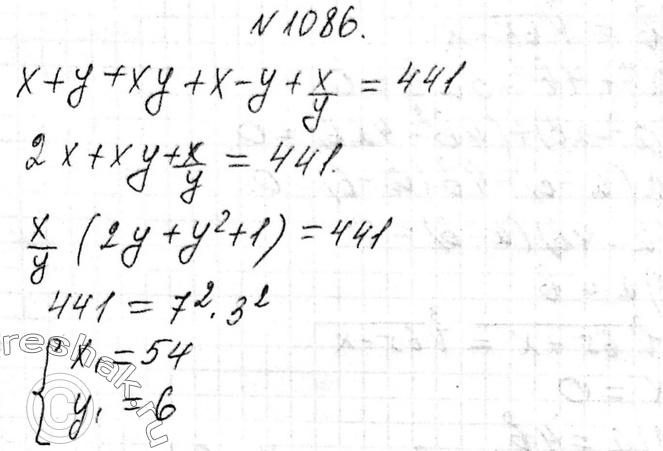 №1086.
x+y+xy+x-y+x/y=441
2x+xy+x/y=441.
x/y(2y+y²+1)=441
441=7²·3²
{x₁=54
y₁=6
reshak.ru